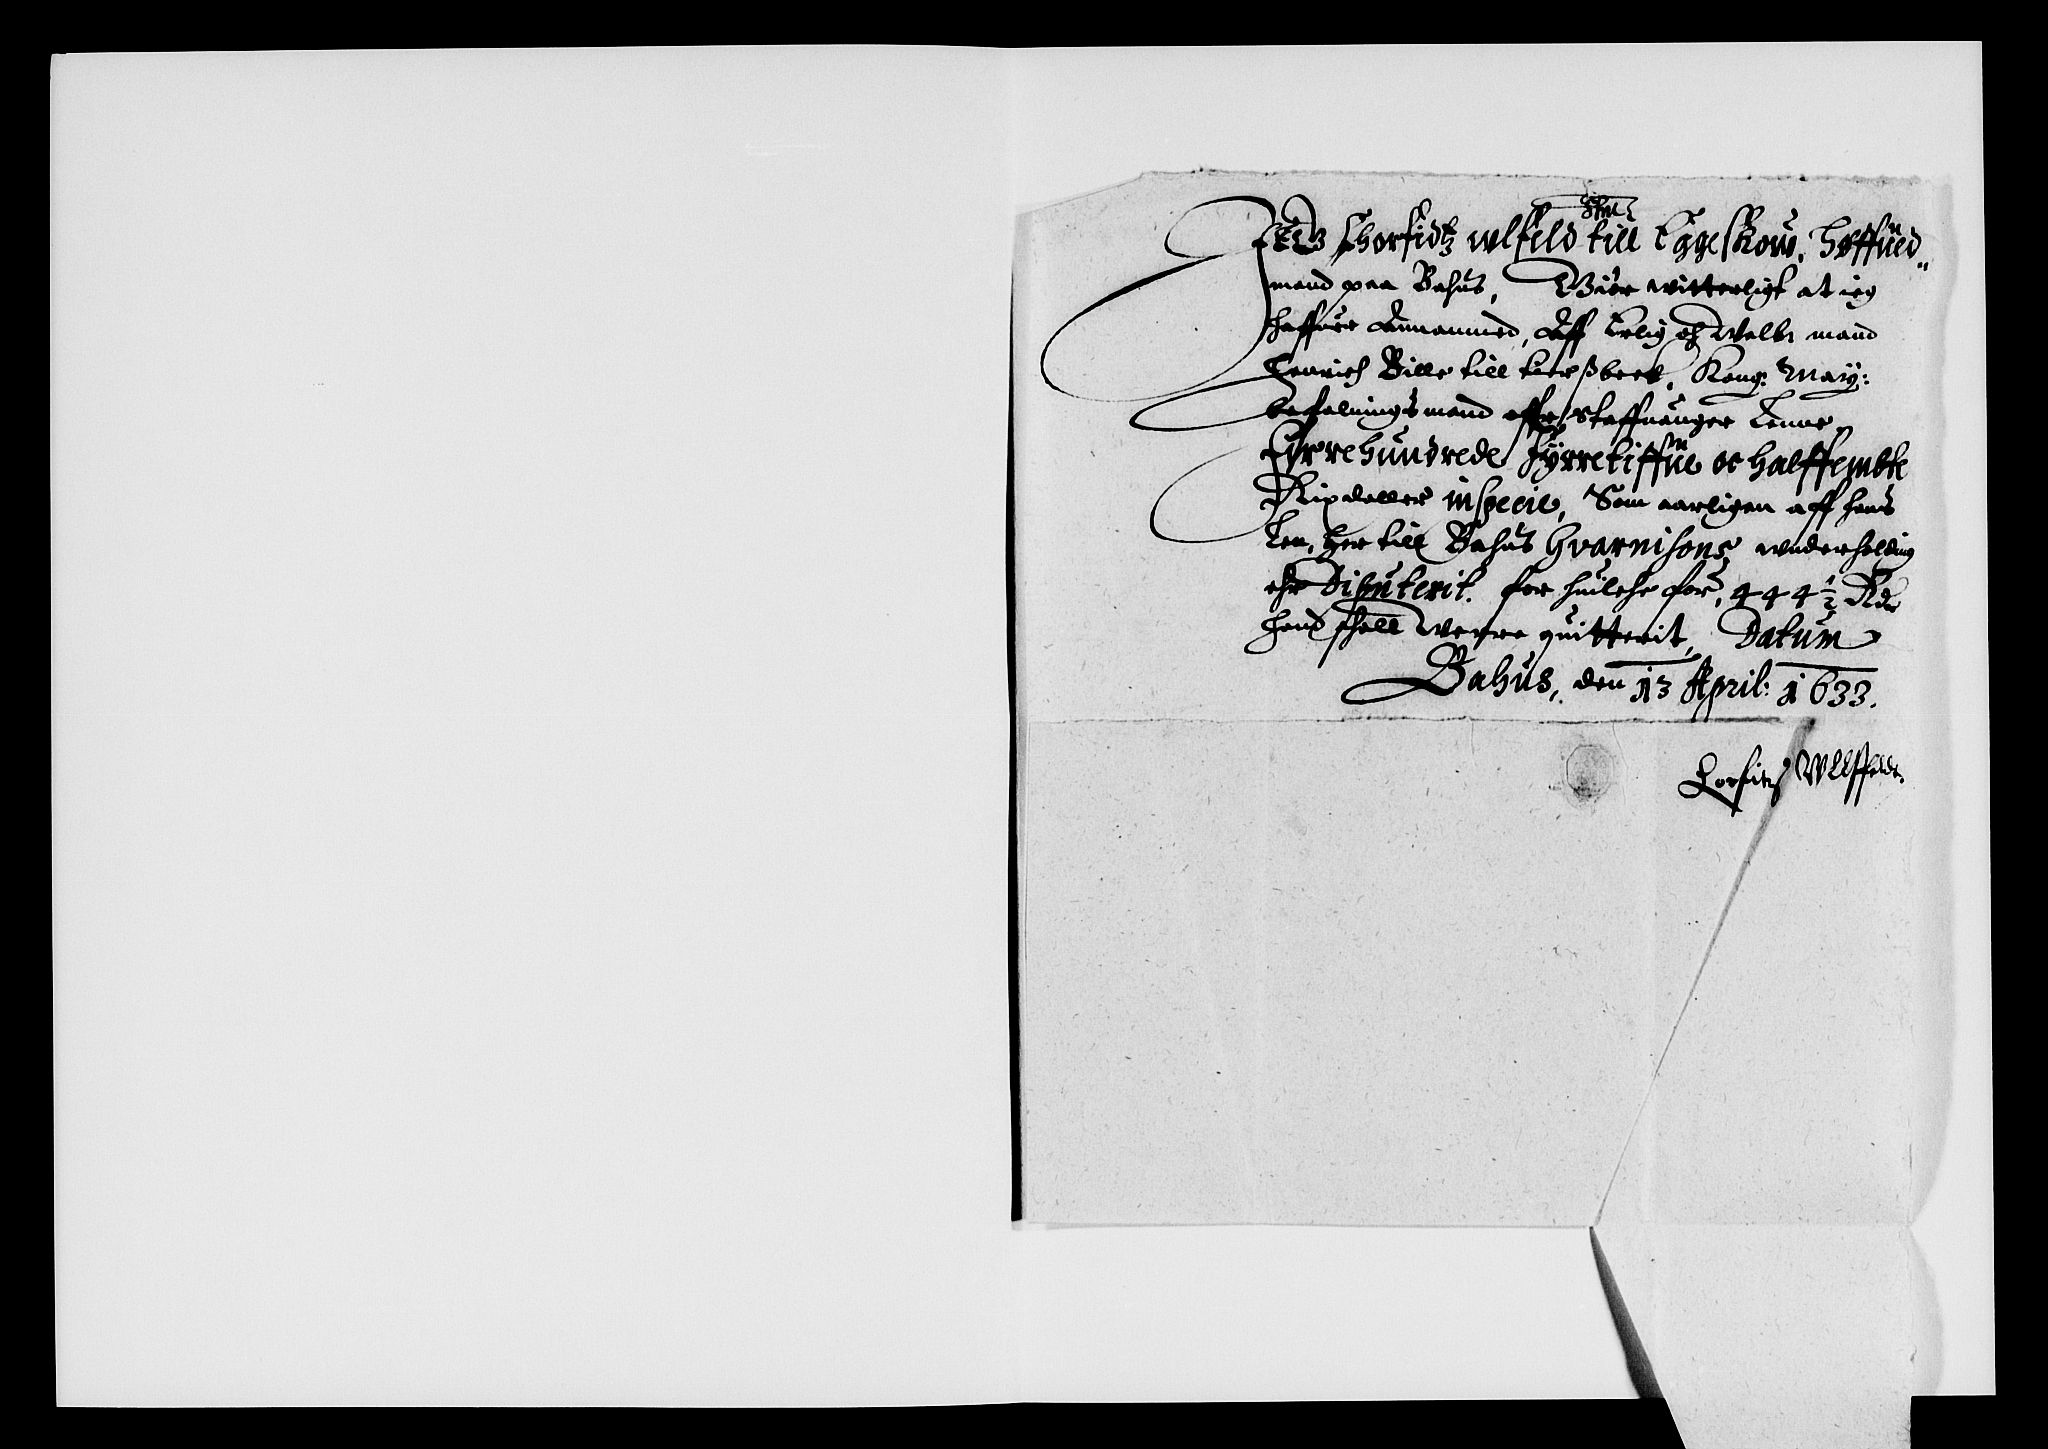 Jeg Chorfidtz wlfeld till Eggeskow, høffued„
mand paa Bahus, Giør witterligt at ieg
haffuer Annammed, Aff Erlig och Welb: mand
Henrich Bille till tirsbeck, Kong: May:
befalningsmand offr Staffuanger Lenne
Fyrrehundrede Fyrretiffue oc halffembte
Rixdaller in specie, Som aarligen aff hans
Len, her till Bahus Gvarnisons wnderholding
ehr Diputerit. for huilche for, 444½ Rdr
hand schall werre quitterit, Datum
Bahus, den 13 April: 1633.
Lorfitz Wllffeldt.